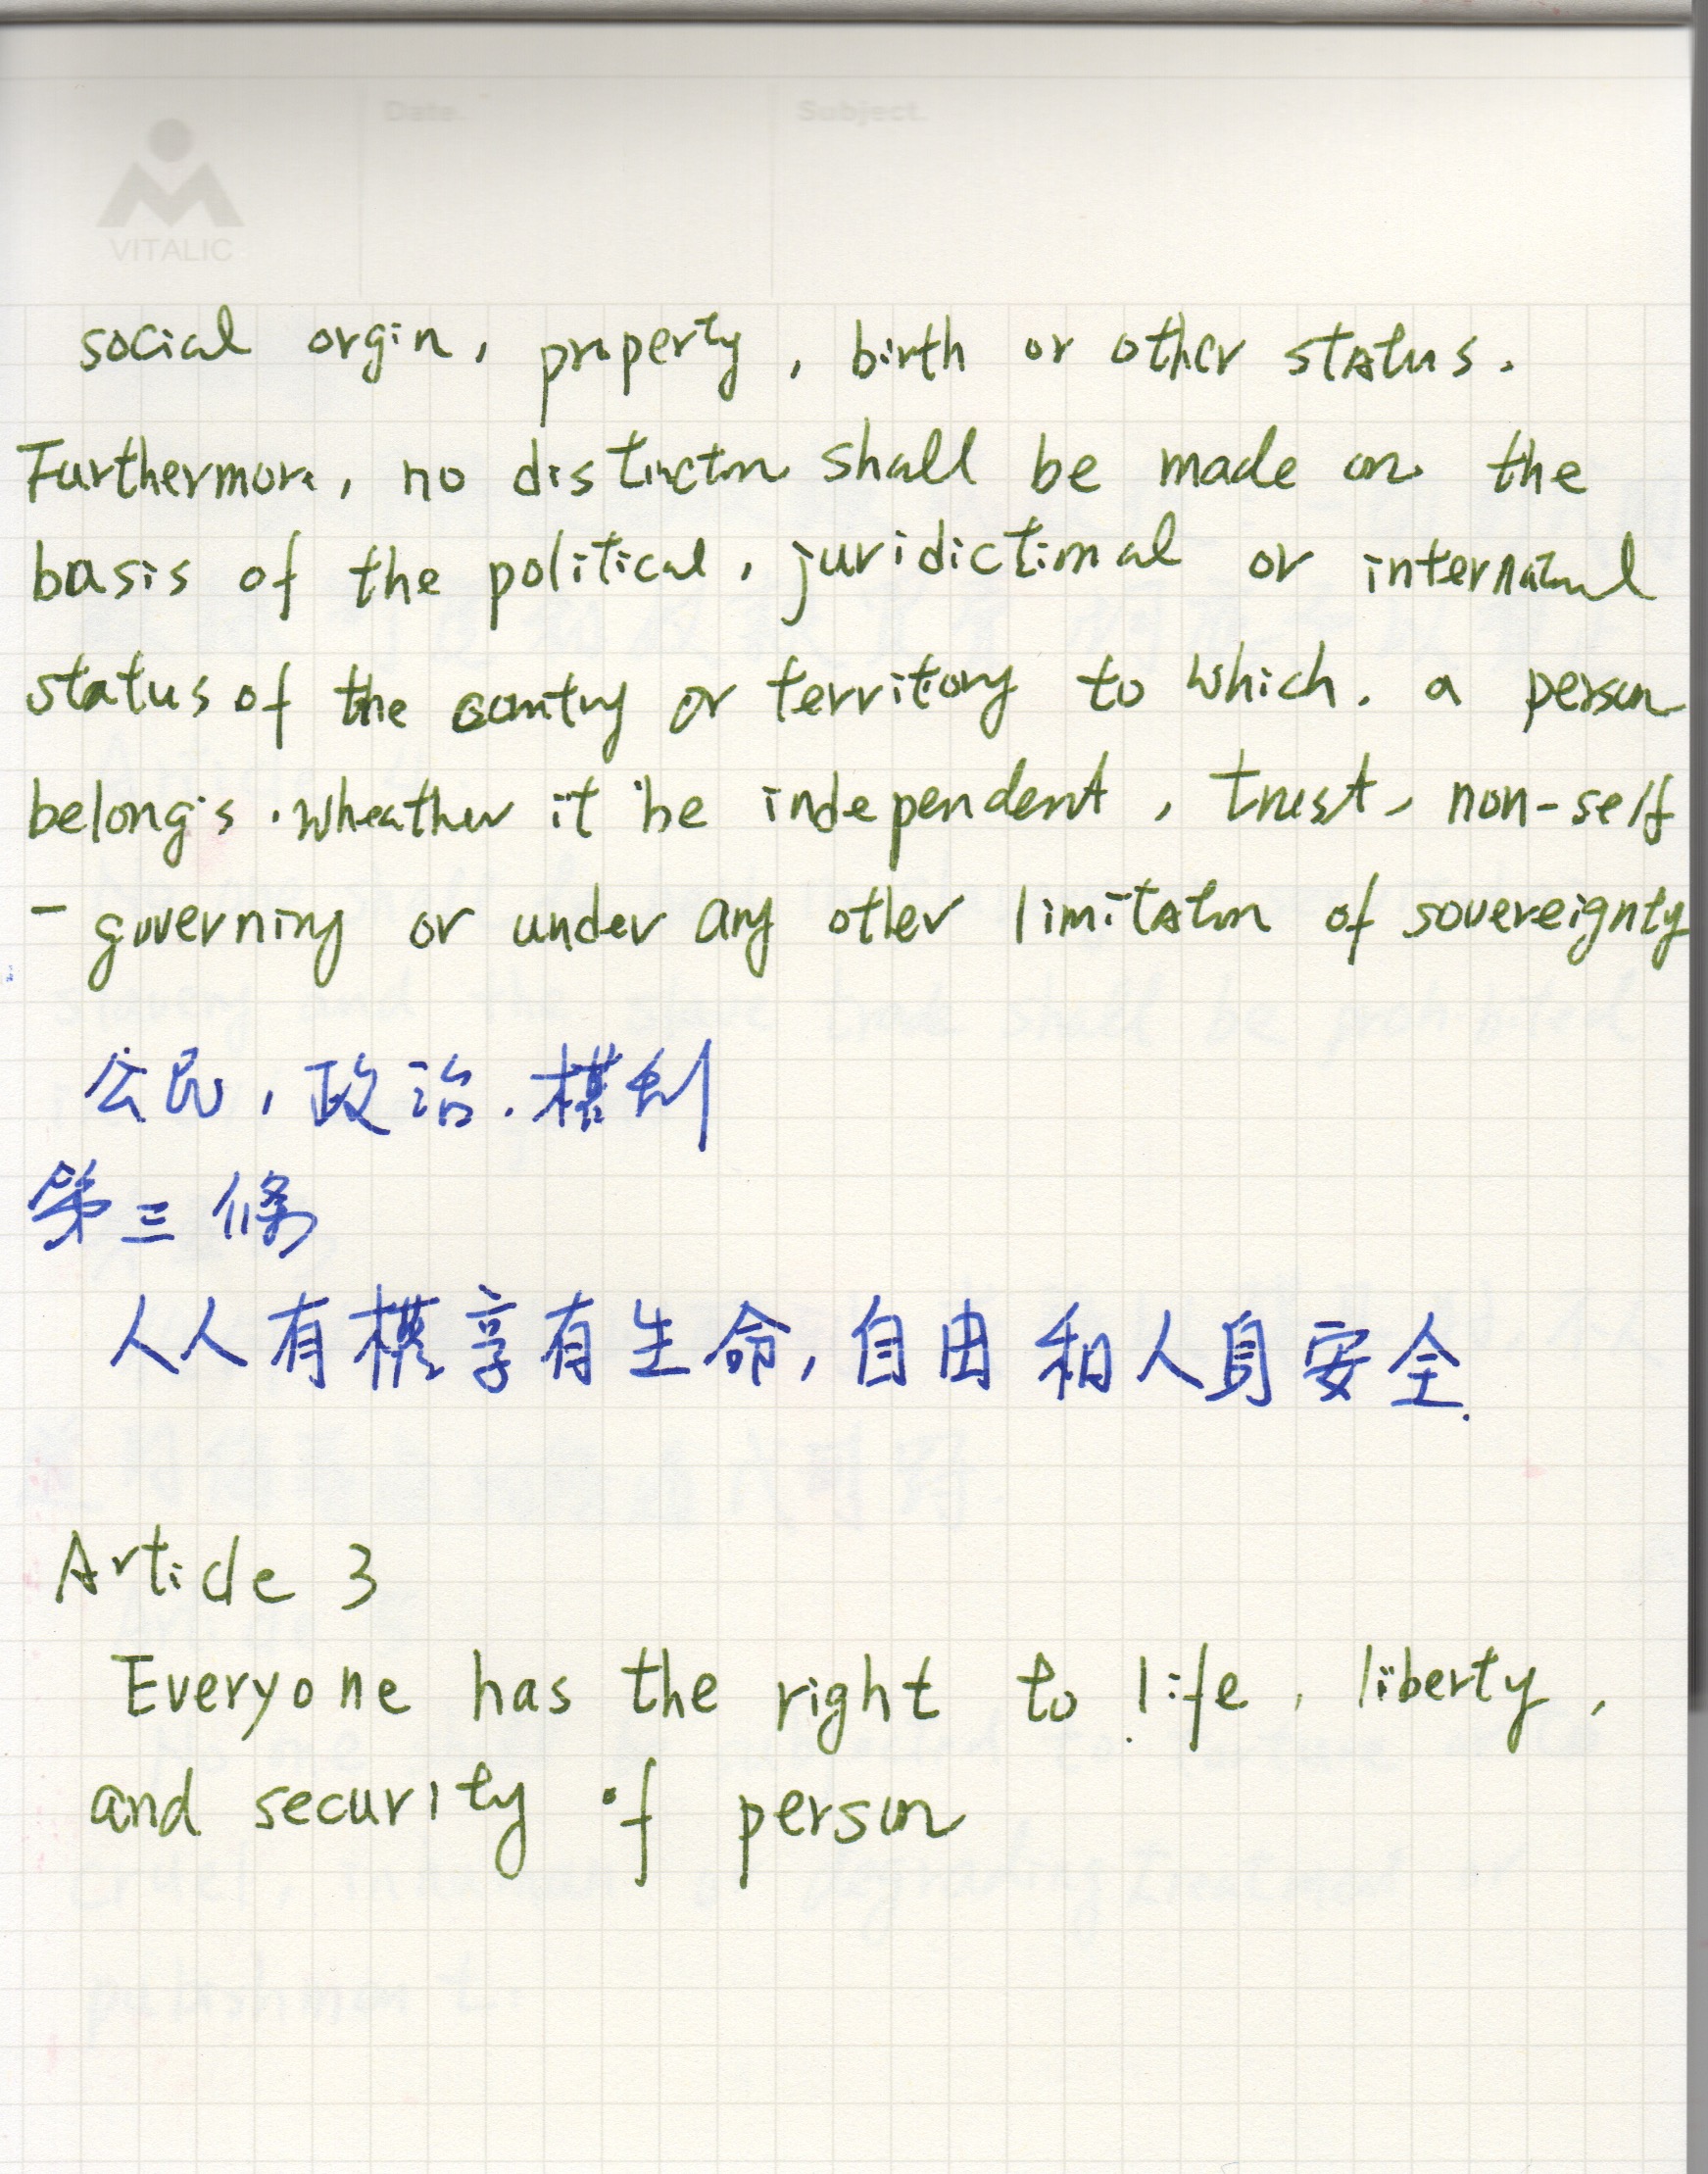 Date.
Subject.
VITALIC
social orgin, property, birth or other status.
Furthermore, no distinction shall be made on the
basis of the political, juridictional or international
status of the country or territory to which. a person
belongs. wheather it be independent, trust, non-self
- governing or under any other limitation of sovereignty
公民,政治.權利
第三條
人人有權享有生命,自由和人身安全.
Article 3
Everyone has the right to life, liberty,
and security of person